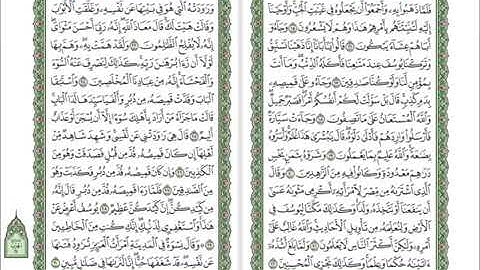 فَلَمَّا ذَهَبُوا۟ بِهِۦ وَأَجْمَعُوٓا۟ أَن يَجْعَلُوهُ فِى غَيَـٰبَتِ ٱلْجُبِّ وَأَوْحَيْنَآ
إِلَيْهِ لَتُنَبِّئَنَّهُم بِأَمْرِهِمْ هَـٰذَا وَهُمْ لَا يَشْعُرُونَ ١٥ وَجَآءُوٓ
أَبَاهُمْ عِشَآءً يَبْكُونَ ١٦ قَالُوا۟ يَـٰٓأَبَانَآ إِنَّا ذَهَبْنَا نَسْتَبِقُ
وَتَرَكْنَا يُوسُفَ عِندَ مَتَـٰعِنَا فَأَكَلَهُ ٱلذِّئْبُ وَمَآ أَنتَ
بِمُؤْمِنٍ لَّنَا وَلَوْ كُنَّا صَـٰدِقِينَ ١٧ وَجَآءُو عَلَىٰ قَمِيصِهِۦ
بِدَمٍ كَذِبٍ قَالَ بَلْ سَوَّلَتْ لَكُمْ أَنفُسُكُمْ أَمْرًا فَصَبْرٌ جَمِيلٌ
وَٱللَّهُ ٱلْمُسْتَعَانُ عَلَىٰ مَا تَصِفُونَ ١٨ وَجَآءَتْ سَيَّارَةٌ
فَأَرْسَلُوا۟ وَارِدَهُمْ فَأَدْلَىٰ دَلْوَهُۥ قَالَ يَـٰبُشْرَىٰ هَـٰذَا غُلَـٰمٌ وَأَسَرُّوهُ
بِضَـٰعَةً وَٱللَّهُ عَلِيمٌۢ بِمَا يَعْمَلُونَ ١٩ وَشَرَوْهُ بِثَمَنٍۭ بَخْسٍ
دَرَٰهِمَ مَعْدُودَةٍ وَكَانُوا۟ فِيهِ مِنَ ٱلزَّٰهِدِينَ ٢٠ وَقَالَ
ٱلَّذِى ٱشْتَرَىٰهُ مِن مِّصْرَ لِٱمْرَأَتِهِۦٓ أَكْرِمِى مَثْوَىٰهُ عَسَىٰٓ
أَن يَنفَعَنَآ أَوْ نَتَّخِذَهُۥ وَلَدًا وَكَذَٰلِكَ مَكَّنَّا لِيُوسُفَ فِى
ٱلْأَرْضِ وَلِنُعَلِّمَهُۥ مِن تَأْوِيلِ ٱلْأَحَادِيثِ وَٱللَّهُ غَالِبٌ عَلَىٰٓ
أَمْرِهِۦ وَلَـٰكِنَّ أَكْثَرَ ٱلنَّاسِ لَا يَعْلَمُونَ ٢١ وَلَمَّا بَلَغَ أَشُدَّهُۥٓ
ءَاتَيْنَـٰهُ حُكْمًا وَعِلْمًا وَكَذَٰلِكَ نَجْزِى ٱلْمُحْسِنِينَ ٢٢
وَرَٰوَدَتْهُ ٱلَّتِى هُوَ فِى بَيْتِهَا عَن نَّفْسِهِۦ وَغَلَّقَتِ ٱلْأَبْوَٰبَ
وَقَالَتْ هَيْتَ لَكَ قَالَ مَعَاذَ ٱللَّهِ إِنَّهُۥ رَبِّىٓ أَحْسَنَ مَثْوَاىَ
إِنَّهُۥ لَا يُفْلِحُ ٱلظَّـٰلِمُونَ ٢٣ وَلَقَدْ هَمَّتْ بِهِۦ وَهَمَّ بِهَا
لَوْلَآ أَن رَّءَا بُرْهَـٰنَ رَبِّهِۦ كَذَٰلِكَ لِنَصْرِفَ عَنْهُ ٱلسُّوٓءَ
وَٱلْفَحْشَآءَ إِنَّهُۥ مِنْ عِبَادِنَا ٱلْمُخْلَصِينَ ٢٤ وَٱسْتَبَقَا
ٱلْبَابَ وَقَدَّتْ قَمِيصَهُۥ مِن دُبُرٍ وَأَلْفَيَا سَيِّدَهَا لَدَا ٱلْبَابِ
قَالَتْ مَا جَزَآءُ مَنْ أَرَادَ بِأَهْلِكَ سُوٓءًا إِلَّآ أَن يُسْجَنَ أَوْ عَذَابٌ
أَلِيمٌ ٢٥ قَالَ هِىَ رَٰوَدَتْنِى عَن نَّفْسِى وَشَهِدَ شَاهِدٌ مِّنْ
أَهْلِهَآ إِن كَانَ قَمِيصُهُۥ قُدَّ مِن قُبُلٍ فَصَدَقَتْ وَهُوَ مِنَ
ٱلْكَـٰذِبِينَ ٢٦ وَإِن كَانَ قَمِيصُهُۥ قُدَّ مِن دُبُرٍ فَكَذَبَتْ وَهُوَ
مِنَ ٱلصَّـٰدِقِينَ ٢٧ فَلَمَّا رَءَا قَمِيصَهُۥ قُدَّ مِن دُبُرٍ قَالَ إِنَّهُۥ
مِن كَيْدِكُنَّ إِنَّ كَيْدَكُنَّ عَظِيمٌ ٢٨ يُوسُفُ أَعْرِضْ عَنْ
هَـٰذَا وَٱسْتَغْفِرِى لِذَنۢبِكِ إِنَّكِ كُنتِ مِنَ ٱلْخَاطِـِٔينَ
٢٩ وَقَالَ نِسْوَةٌ فِى ٱلْمَدِينَةِ ٱمْرَأَتُ ٱلْعَزِيزِ تُرَٰوِدُ فَتَىٰهَا
عَن نَّفْسِهِۦ قَدْ شَغَفَهَا حُبًّا إِنَّا لَنَرَىٰهَا فِى ضَلَـٰلٍ مُّبِينٍ ٣٠